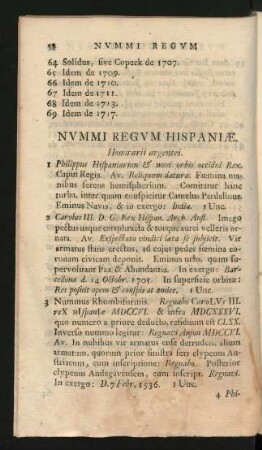 58 NVMMI REGVM
64 Solidus, sive Copeck de 1707.
65 Idem de 1709.
66 Idem de 1710.
67 Idem de 1711.
68 Idem de 1713.
69 Idem de 1717.
NVMMI REGVM HISPANIÆ.
Honorarii argentei.
1 Philippus Hispaniarum & novi orbis occidui Rex.
Caput Regis. Av. Reliquum datura. Fœmina ma-
nibus ferens hemisphærium. Comitatur hanc
turba, inter quam conspicitur Camelus Pardalinus.
Eminus Navis, & in exergo: India. 1 Unc.
2 Carolus III. D. G. Rex Hispan. Arch. Aust. Imago
pectus usque cataphracta & torque aurei velleris or-
nata. Av. Exspectato condici læta se subjicit. Vir
armatus stans erectus, ad cujus pedes fœmina co-
ronam civicam deponit. Eminus urbs, quam su-
pervolitant Pax & Abundantia. In exergo: Bar-
cellona d. 14 Octobr. 1705. In superficie orbita:
Res poscit opem & conspirat amice. 1 Unc.
3 Nummus Rhombiformis. Regnabo CaroLVs III.
reX HIspanIæ MDCCVI. & infra MDCXXXVI.
quo numero a priore deducto, residuum est CLXX.
Inverso nummo legitur: Regnavi Anjou MDCCVI.
Av. In nubibus vir armatus ense denudato, alium
armatum, quorum prior sinistra fert clypeum Au-
striacum, cum inscriptione: Regnabo. Posterior
clypeum Andegavensem, cum inscript. Regnavi.
In exergo: D. 7 Febr. 1536. 1 Unc.
4 Phi-